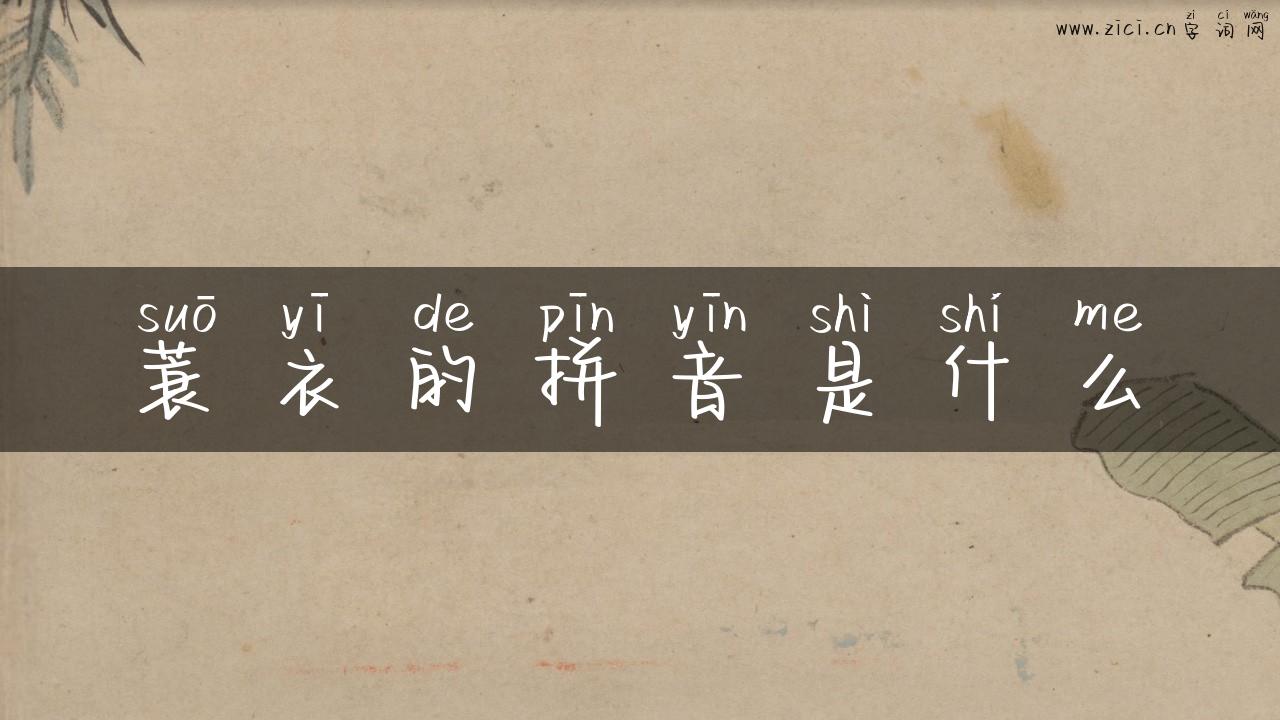 zì cí wǎng
www.zici.cn 字 词 网
suō yī de pīn yīn shì shí me
蓑 衣 的 拼 音 是 什 么